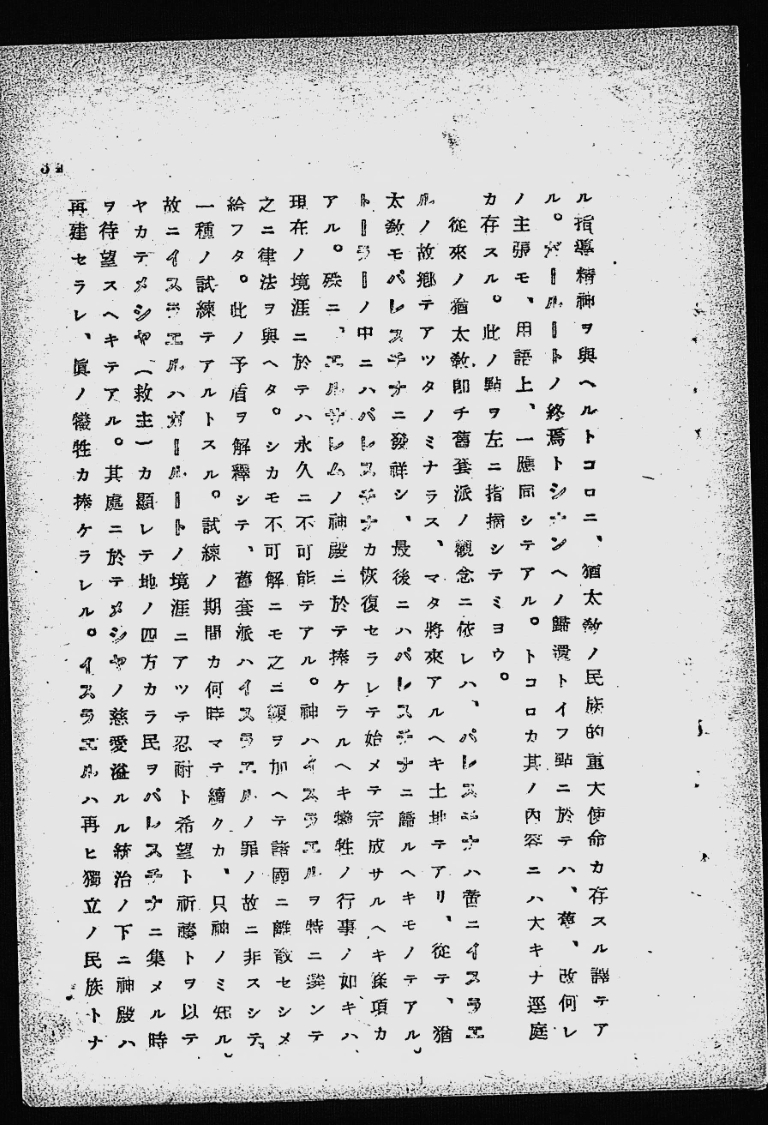 ル指導精神ヲ與ヘルトコロニ、猶太敎ノ民族的重大使命カ存スル譯テア
ル。ガールートノ終焉トシオンヘノ歸還トイフ點ニ於テハ、舊、改何レ
ノ主張モ、用語上、一應同シテアル。トコロカ其ノ內容ニハ大キナ逕庭
カ存スル。此ノ點ヲ左ニ指摘シテミヨウ。
從來ノ猶太敎卽チ舊套派ノ觀念ニ依レハ、パレスチナハ啻ニイスラエ
ルノ故鄕テアツタノミナラス、マタ將來アルヘキ土地テアリ、從テ、猶
太敎モパレスチナニ發祥シ、最後ニハパレスチナニ歸ルヘキモノテアル。
トーラーノ中ニハパレスチナカ恢復セラレテ始メテ完成サルヘキ條項カ
アル。殊ニ、エルサレムノ神殿ニ於テ捧ケラルヘキ犧牲ノ行事ノ如キハ、
現在ノ境涯ニ於テハ永久ニ不可能テアル。神ハイスラエルヲ特ニ選ンテ
之ニ律法ヲ與ヘタ。シカモ不可解ニモ之ニ ヲ加ヘテ諸國ニ離散セシメ
給フタ。此ノ予盾ヲ解釋シテ、舊套派ハイスラエルノ罪ノ故ニ非スシテ、
一種ノ試練テアルトスル。試練ノ期間カ何時マテ續クカ、只神ノミ知ル。
故ニイスラエルハガールートノ境涯ニアツテ忍耐ト希望ト祈禱トヲ以テ
ヤカテメシヤ(救主)カ顯レテ地ノ四方カラ民ヲパレスチナニ集メル時
ヲ待望スヘキテアル。其處ニ於テメシヤノ慈愛溢ルル統治ノ下ニ神殿ハ
再建セラレ、眞ノ犧牲カ捧ケラレル。イスラエルハ再ヒ獨立ノ民族トナ